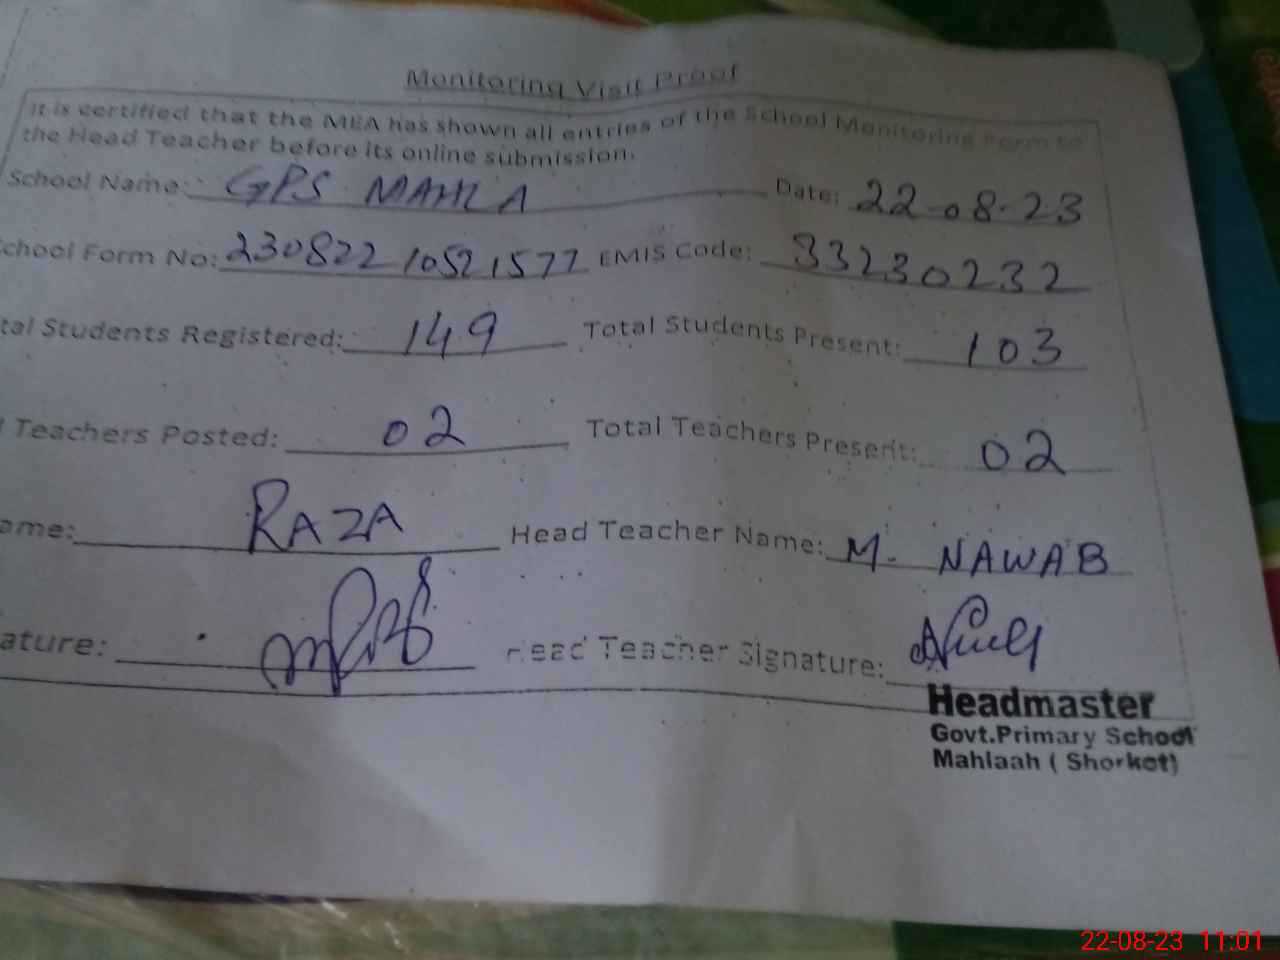 Monitoring Visit Proof
It is certified that the MEA has shown all entries of the School Monitoring Form to
the Head Teacher before its online submission.
School Name: GPS MAHLA Date: 22-08-23
chool Form No: 230822 10521577 EMIS Code: 33230232
tal Students Registered: 149 Total Students Present: 103
l Teachers Posted: 02 Total Teachers Present: 02
ame: RAZA Head Teacher Name: M. NAWAB
ature: Head Teacher Signature:
Headmaster
Govt.Primary School
Mahlaah ( Shorkot)
22-08-23 11:01